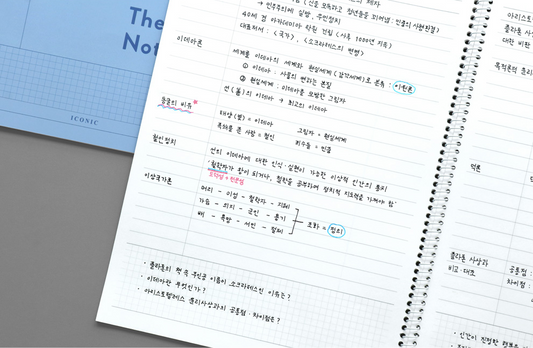 The
Not
ICONIC
→ 민주주의에 실망, 우민정치
40세 경 아카데미아 학원 건립 (이후 1000년 지속)
대표저서 : 〈국가〉, 〈소크라테스의 변명〉
이데아론
세계를 이데아의 세계와 현실세계(감각세계)로 분류 : 이원론
① 이데아 : 사물의 변하는 본질
② 현실세계 : 이데아를 모방한 그림자
선(善)의 이데아 → 최고의 이데아
동굴의 비유
태양(빛) = 이데아
그림자 = 현실세계
죄수들 = 민중
철인정치
선의 이데아에 대한 인식·실현이 가능한 이상적 인간의 통치
'철학자가 왕이 되거나, 왕이 철학을 공부하여 정치적 지도력을 가져야 함'
이상국가론
머리 - 이성 - 철학자 - 지혜
가슴 - 의지 - 군인 - 용기
배 - 욕망 - 서민 - 절제
조화 = 정의
· 플라톤의 책 속 주인공 이름이 소크라테스인 이유는?
· 이데아란 무엇인가?
· 아리스토텔레스 윤리사상과의 공통점·차이점은?
아리스토
플라톤 사상
대한 비판
목적론적
덕론
플라톤 사상과
비교·대조
공통점 :
차이점 :